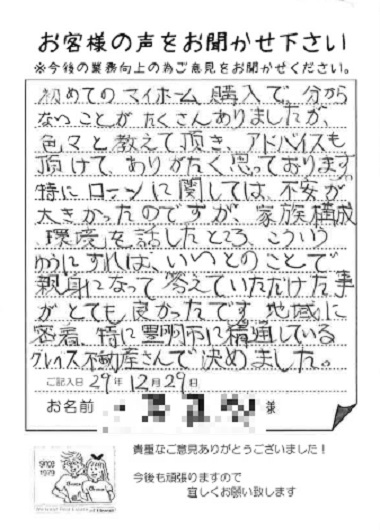 お客様の声をお聞かせ下さい
※今後の業務向上の為ご意見をお聞かせください。
初めてのマイホーム購入で、分から
ないことがたくさんありましたが、
色々と教えて頂き、アドバイスも
頂けて、ありがたく思っております。
特にローンに関しては、不安が
大きかったのですが、家族構成
環境を話したところ、こういう
ふうにすれば、いいとのことで
親身になって答えていただけた事
がとても良かったです。地域に
密着、特に豊川市に精通している
グレイス不動産さんで決めました。
ご記入日 29年 12月 29日
お名前 様
貴重なご意見ありがとうございました!
今後も頑張りますので
宜しくお願い致します
SINCE
1979